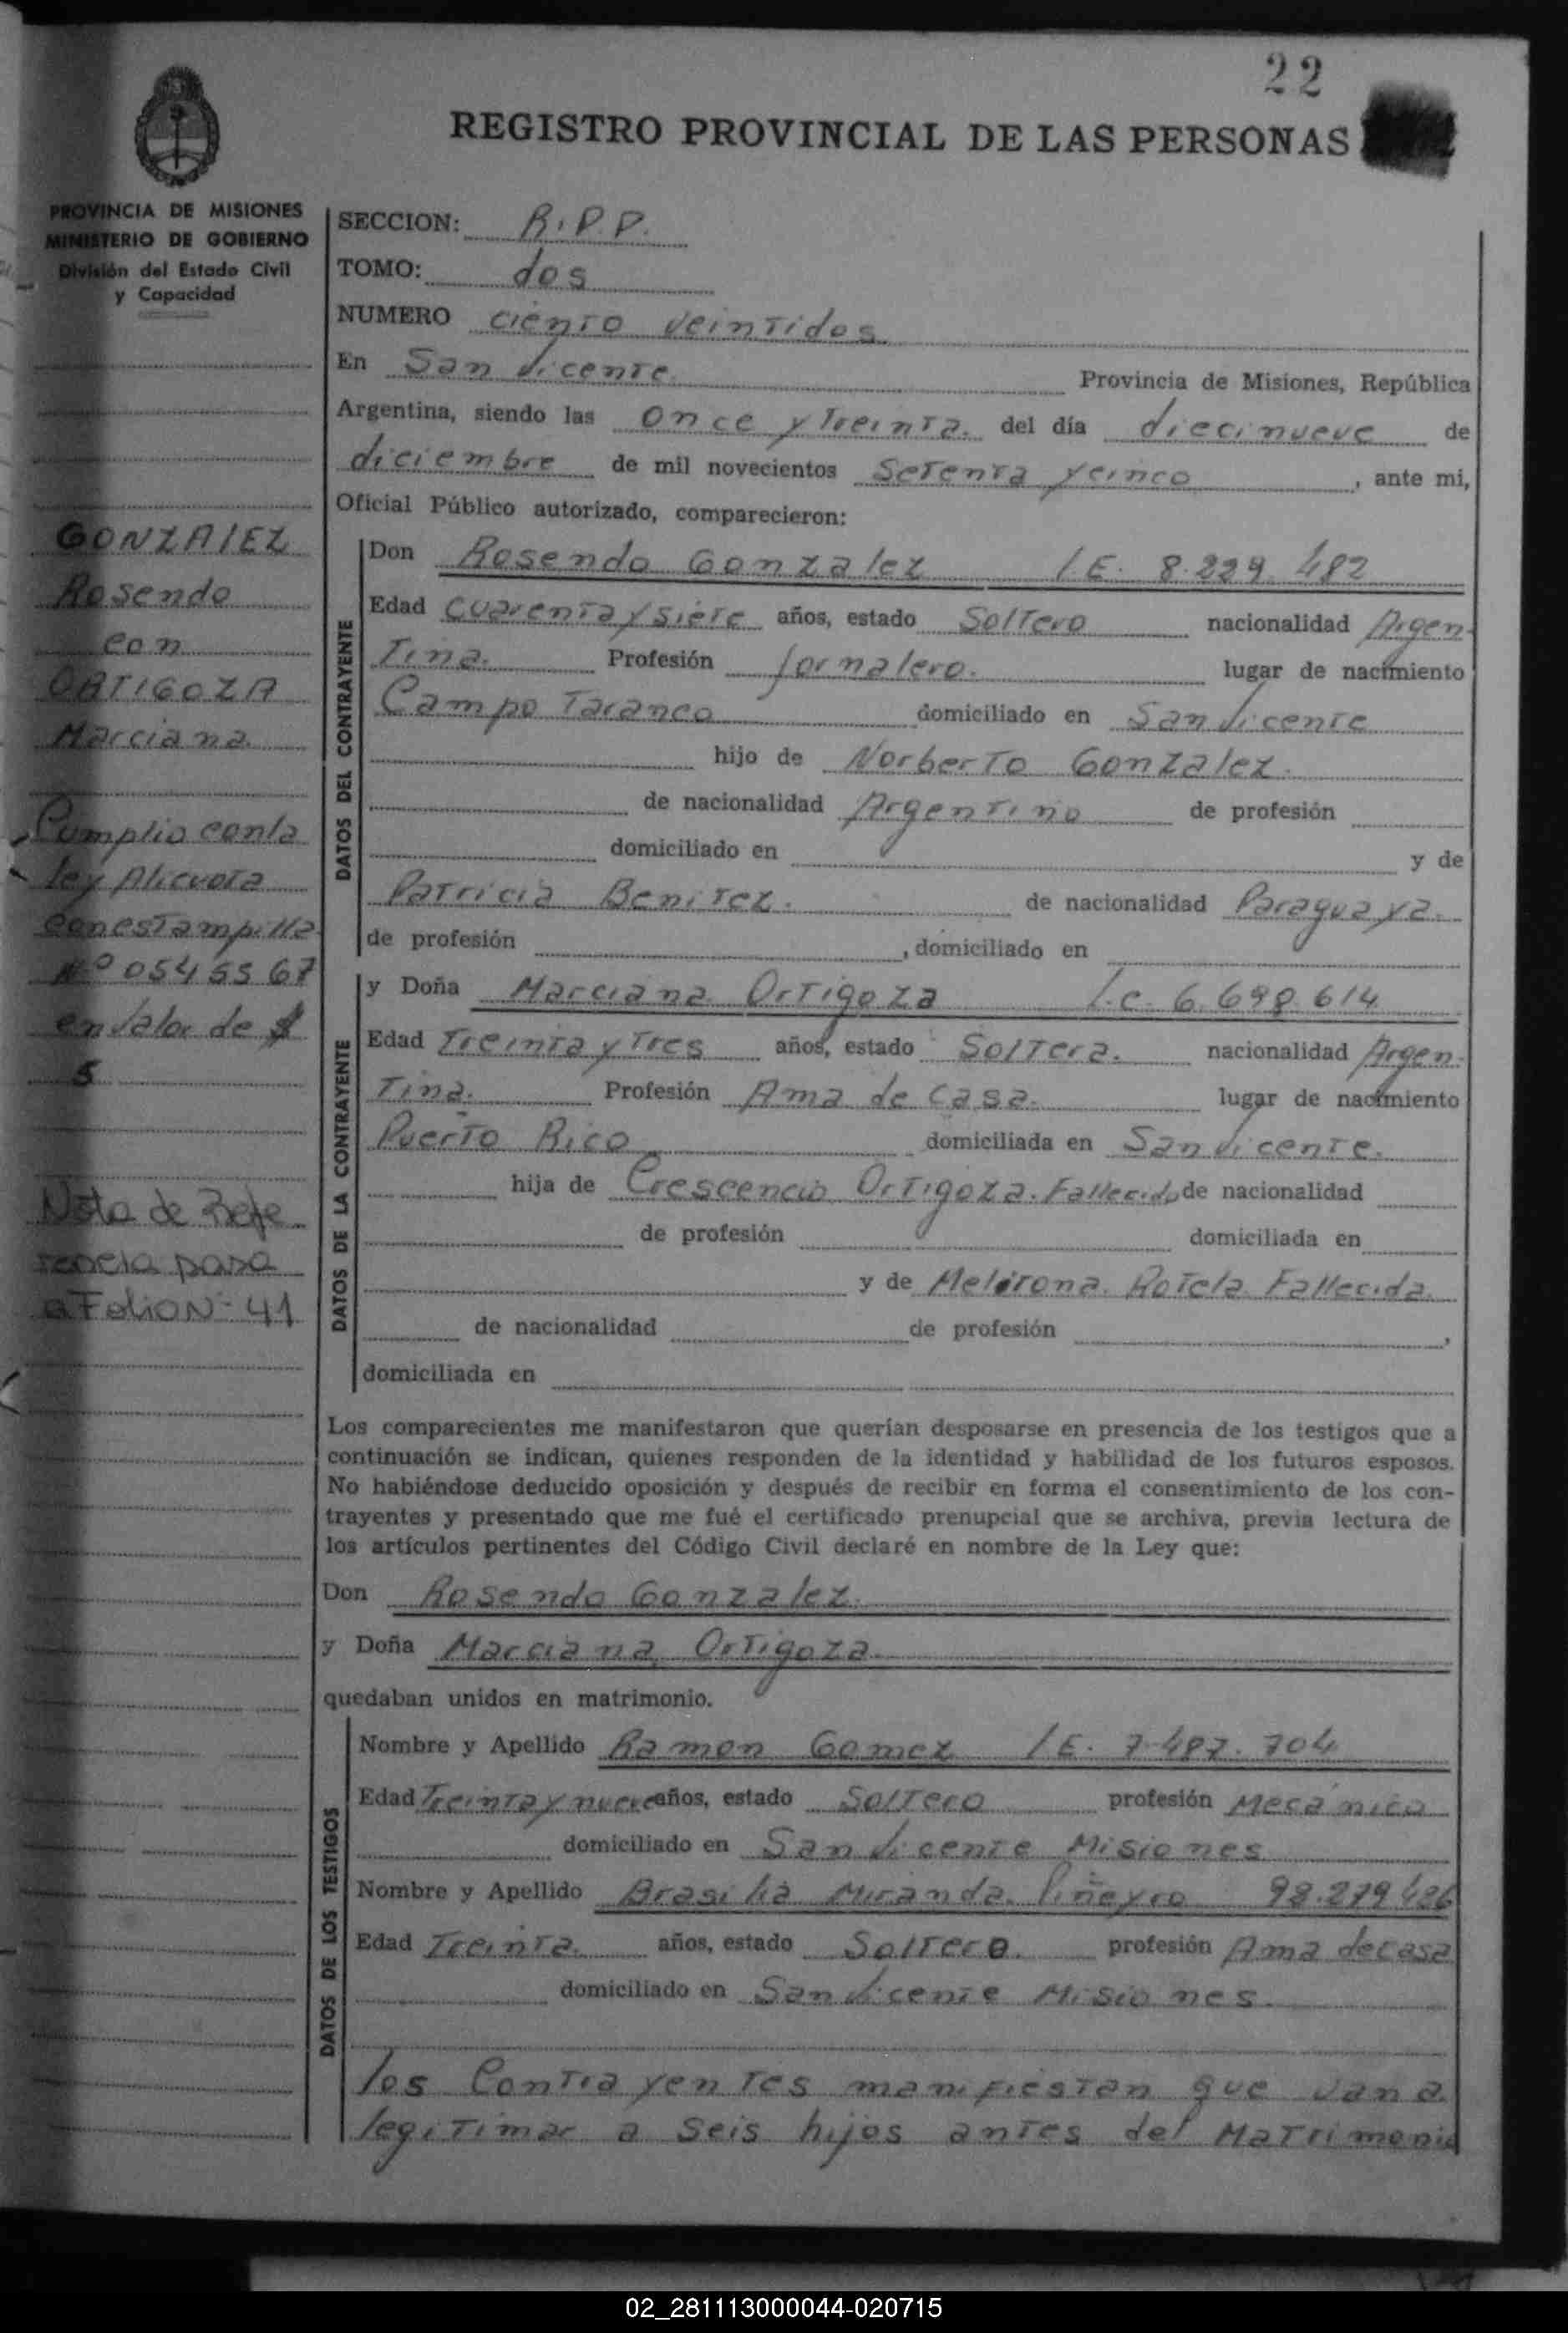 22
REGISTRO PROVINCIAL DE LAS PERSONAS
PROVINCIA DE MISIONES
MINISTERIO DE GOBIERNO
División del Estado Civil
y Capacidad
SECCION: R.P.P.
TOMO: dos
NUMERO ciento veintidos
En San Vicente Provincia de Misiones, República
Argentina, siendo las once y treinta del día diecinueve de
diciembre de mil novecientos setenta y cinco, ante mi,
Oficial Público autorizado, comparecieron:
GONZALEZ
Rosendo
con
ORTIGOZA
Marciana
Cumplio con la
ley Alicuota
con estampilla
Nº 0545567
en Valor de $
5
Nota de Refe
rencia pasa
a Folio N- 41
DATOS DEL CONTRAYENTE
Don Rosendo Gonzalez L.E. 8.229.482
Edad Cuarenta y siete años, estado Soltero nacionalidad Argen-
Tina. Profesión Jornalero. lugar de nacimiento
Campo Taranco domiciliado en San Vicente
hijo de Norberto Gonzalez.
de nacionalidad Argentino de profesión
domiciliado en y de
Patricia Benitez. de nacionalidad Paraguaya.
de profesión , domiciliado en
DATOS DE LA CONTRAYENTE
y Doña Marciana Ortigoza L.C. 6.698.614
Edad Treinta y Tres años, estado Soltera. nacionalidad Argen-
Tina. Profesión Ama de Casa. lugar de nacimiento
Puerto Rico domiciliada en San Vicente.
hija de Crescencio Ortigoza. Fallecido de nacionalidad
de profesión domiciliada en
y de Melitona Rotela Fallecida.
de nacionalidad de profesión ,
domiciliada en
Los comparecientes me manifestaron que querían desposarse en presencia de los testigos que a
continuación se indican, quienes responden de la identidad y habilidad de los futuros esposos.
No habiéndose deducido oposición y después de recibir en forma el consentimiento de los con-
trayentes y presentado que me fué el certificado prenupcial que se archiva, previa lectura de
los artículos pertinentes del Código Civil declaré en nombre de la Ley que:
Don Rosendo Gonzalez.
y Doña Marciana Ortigoza.
quedaban unidos en matrimonio.
DATOS DE LOS TESTIGOS
Nombre y Apellido Ramon Gomez L.E. 7.487.704
Edad Treinta y nueve años, estado Soltero profesión Mecánico
domiciliado en San Vicente Misiones
Nombre y Apellido Brasilia Miranda Piñeyro 98.279.486
Edad Treinta años, estado Soltera. profesión Ama de casa
domiciliado en San Vicente Misiones.
los Contrayentes manifiestan que van a
legitimar a seis hijos antes del Matrimonio
02_281113000044-020715